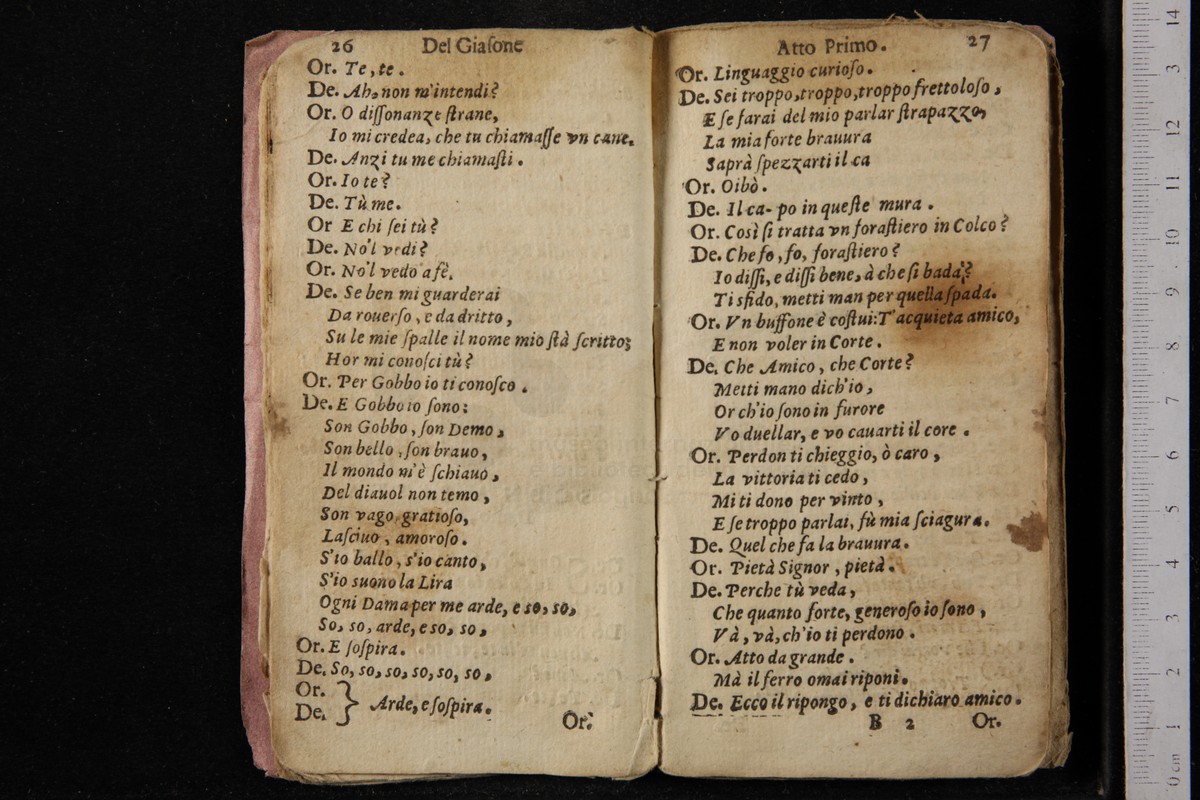 26 Del Giaſone
Or. Te, te.
De. Ah, non m'intendi?
Or. O diſſonanze ſtrane,
Io mi credea, che tu chiamaſſe vn cane.
De. Anzi tu me chiamaſti.
Or. Io te?
De. Tù me.
Or E chi ſei tù?
De. No'l vedi?
Or. No'l vedo a fè.
De. Se ben mi guarderai
Da rouerſo, e da dritto,
Su le mie ſpalle il nome mio ſtà ſcritto;
Hor mi conoſci tù?
Or. Per Gobbo io ti conoſco.
De. E Gobbo io ſono:
Son Gobbo, ſon Demo,
Son bello, ſon brauo,
Il mondo m'è ſchiauo,
Del diauol non temo,
Son vago gratioſo,
Laſciuo, amoroſo.
S'io ballo, s'io canto,
S'io suono la Lira
Ogni Dama per me arde, e so, so,
So, so, arde, e so, so,
Or. E ſoſpira.
De. So, so, so, so, so, so,
Or.
De. } Arde, e ſoſpira.
Or.
Atto Primo. 27
Or. Linguaggio curioſo.
De. Sei troppo, troppo, troppo frettoloſo,
E ſe farai del mio parlar ſtrapazzo,
La mia forte brauura
Saprà ſpezzarti il ca
Or. Oibò.
De. Il ca- po in queſte mura.
Or. Così ſi tratta vn foraſtiero in Colco?
De. Che fo, fo, foraſtiero?
Io diſſi, e diſſi bene, à che ſi bada?
Ti sfido, metti man per quella ſpada.
Or. Vn buffone è coſtui: T'acquieta amico,
E non voler in Corte.
De. Che Amico, che Corte?
Metti mano dich'io,
Or ch'io ſono in furore
Vo duellar, e vo cauarti il core.
Or. Perdon ti chieggio, ò caro,
La vittoria ti cedo,
Mi ti dono per vinto,
E ſe troppo parlai, fù mia ſciagura.
De. Quel che fa la brauura.
Or. Pietà Signor, pietà.
De. Perche tù veda,
Che quanto forte, generoſo io ſono,
Và, và, ch'io ti perdono.
Or. Atto da grande.
Mà il ferro omai riponi.
De. Ecco il ripongo, e ti dichiaro amico.
B 2 Or.
14
13
12
11
10
9
8
7
6
5
4
3
2
1
0 cm